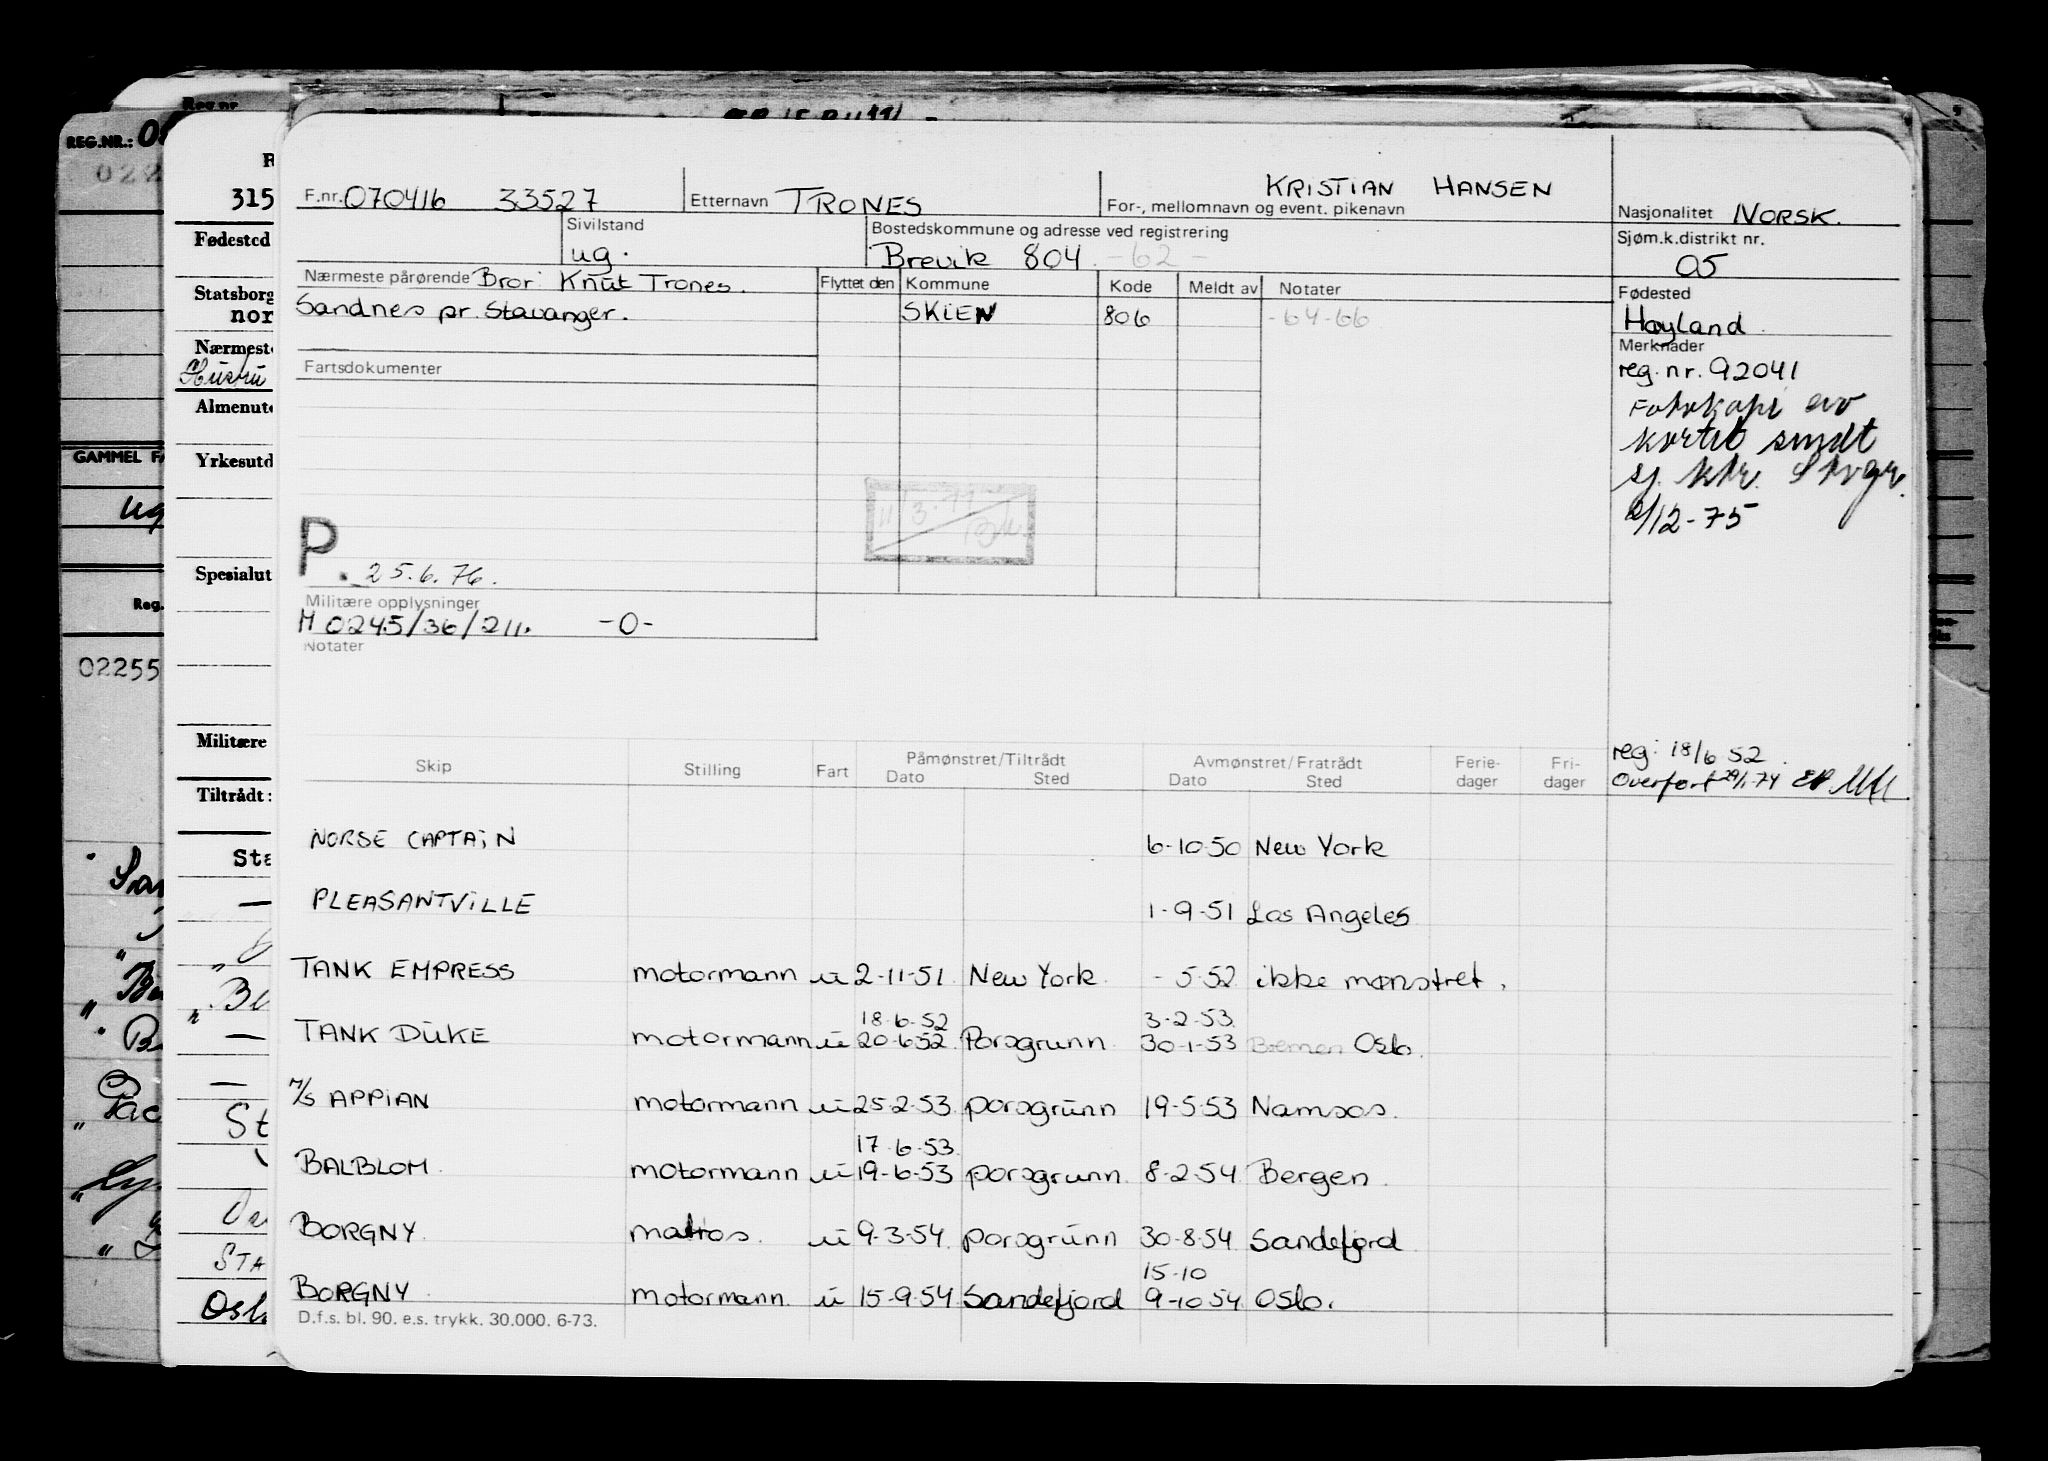 REG.NR.:
Reg.nr.
315
Fødested
Statsborg
nor
Nærmest
Hustru
Almenut
Yrkesutd
Spesialut
Militære
Tiltrådt:
GAMMEL
ug
Reg.
02255
F.nr. 070416 33527 Etternavn TRONES KRISTIAN HANSEN
For-, mellomnavn og event. pikenavn
Nasjonalitet NORSK.
Sivilstand Bostedskommune og adresse ved registrering Sjøm.k.distrikt nr.
ug. Brevik 804. -62- 05
Nærmeste pårørende Bror: Knut Trones. Flyttet den Kommune Kode Meldt av Notater Fødested
Sandnes pr. Stavanger. SKIEN 806 -64-66 Høyland.
Merknader
Fartsdokumenter reg. nr. 92041
Fotokopi av
kortet sendt
sj. ktr. Stvgr.
2/12-75
11/3-77
P. 25.6.76.
Militære opplysninger
M 0245/36/211. -0-
Notater
reg: 18/6 52.
Overført 29/1-74
Skip Stilling Fart Påmønstret/Tiltrådt Avmønstret/Fratrådt Ferie- Fri-
Dato Sted Dato Sted dager dager
NORSE CAPTAIN 6-10-50 New York
PLEASANTVILLE 1-9-51 Los Angeles
TANK EMPRESS motormann u 2-11-51 New York. - 5-52 ikke mønstret.
18-6-52 3-2-53.
TANK DUKE motormann u 20-6-52 Porsgrunn 30-1-53 Bremen Oslo.
M/S APPIAN motormann u 25-2-53. porsgrunn 19-5-53 Namsos.
17-6-53.
BALBLOM. motormann u 19-6-53 porsgrunn 8-2-54 Bergen.
BORGNY. matros. u 9-3-54. porsgrunn 30-8-54. Sandefjord
15-10
BORGNY. motormann. u 15-9-54 Sandefjord 9-10-54 Oslo.
D.f.s. bl. 90. e.s. trykk. 30.000. 6-73.